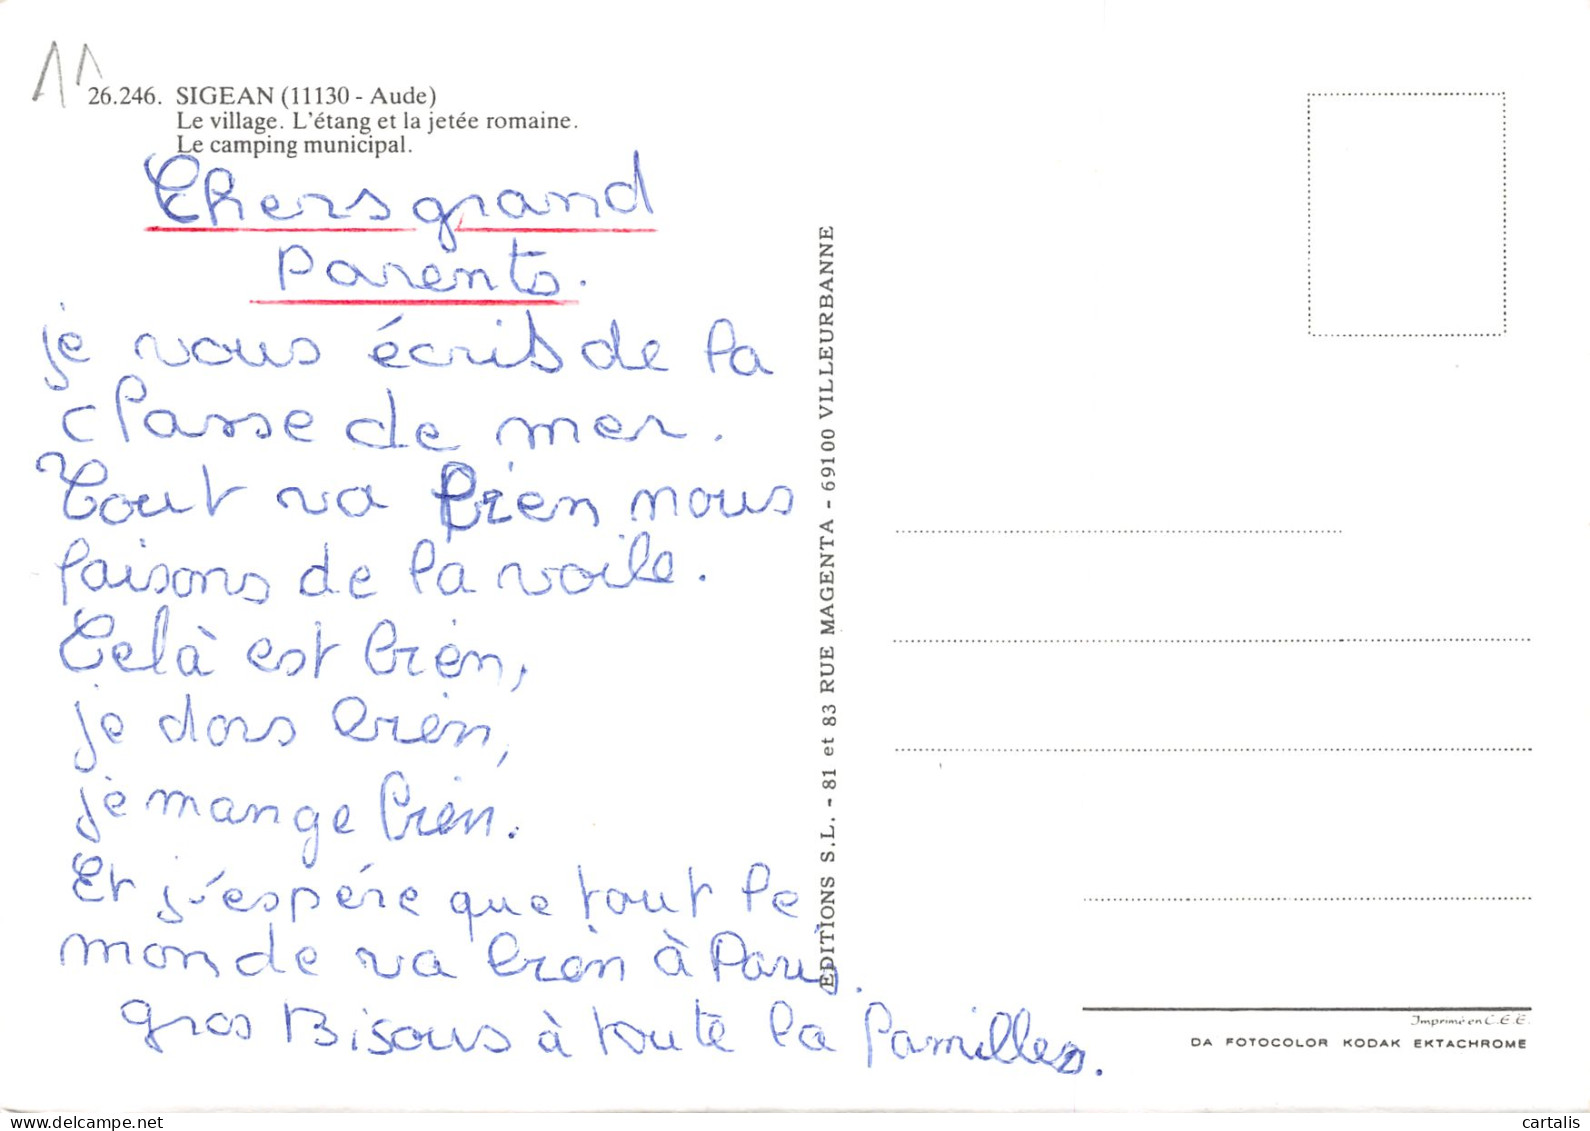 11
26.246. SIGEAN (11130 - Aude)
Le village. L'étang et la jetée romaine.
Le camping municipal.
Chers grand
Parents.
je vous écris de la
classe de mer.
Tout va bien nous
faisons de la voile.
Celà est bien,
je dors bien,
je mange bien.
Et j'espére que tout le
monde va bien à Paris.
gros Bisous à toute la familles.
EDITIONS S.L. - 81 et 83 RUE MAGENTA - 69100 VILLEURBANNE
Imprimé en C.E.E.
DA FOTOCOLOR KODAK EKTACHROME
delcampe.net
cartalis